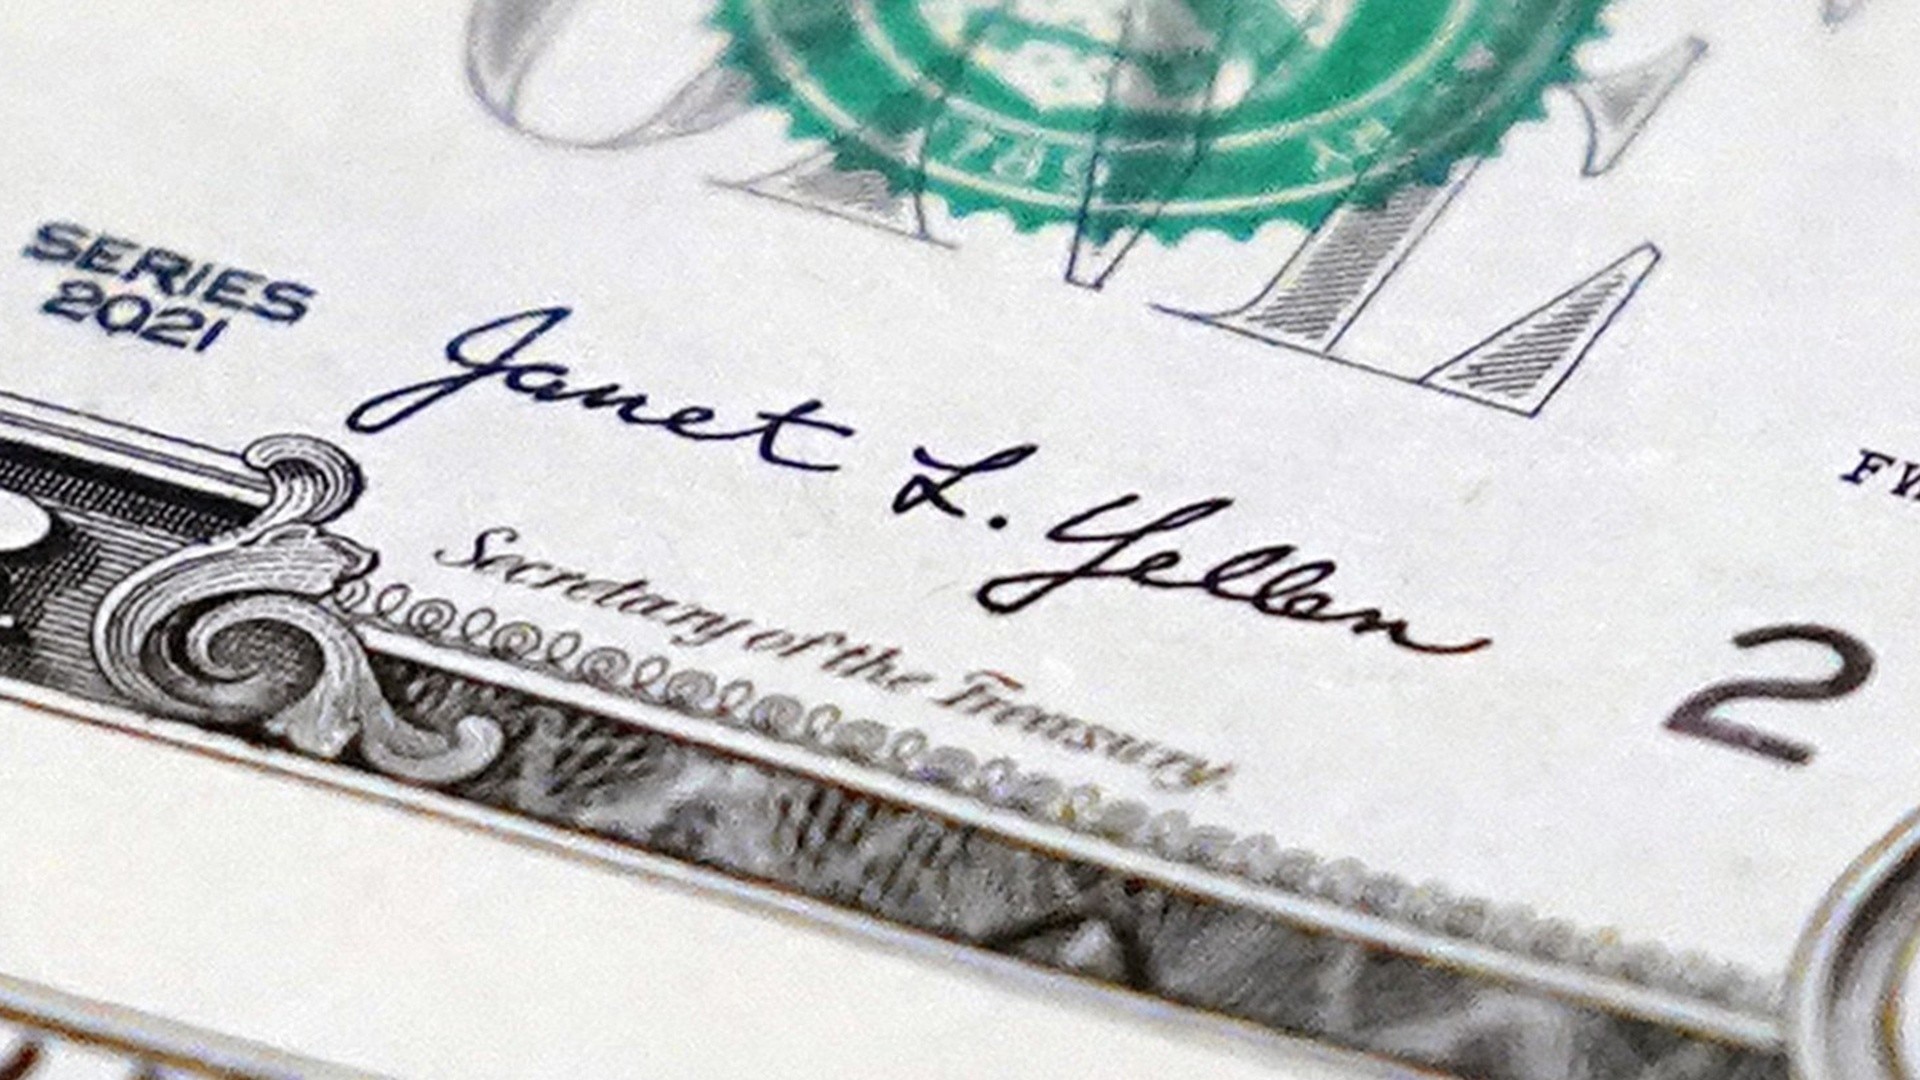 1789
SERIES
2021
Janet L. Yellen
Secretary of the Treasury.
2
FW